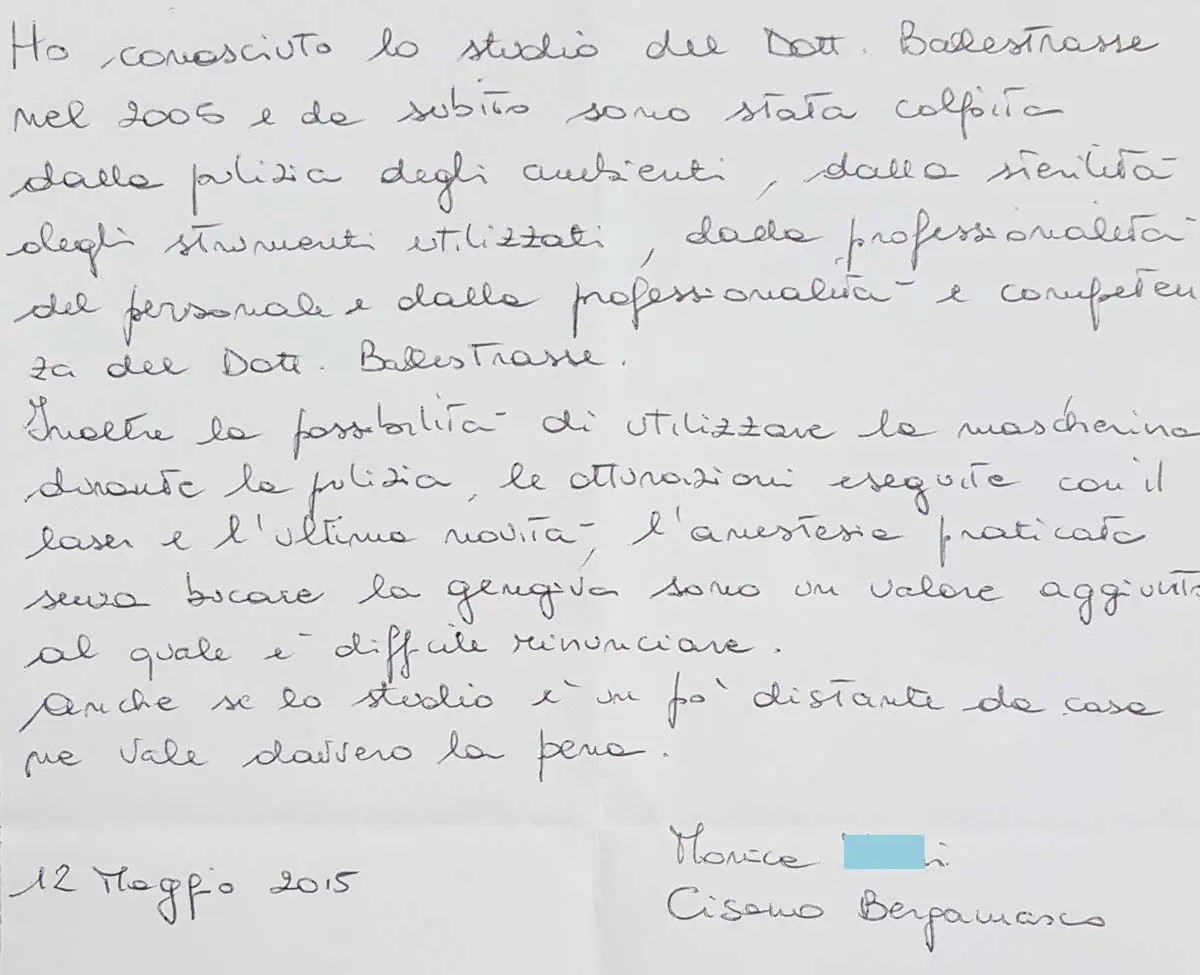 Ho conosciuto lo studio del Dott. Ballestrasse
nel 2005 e da subito sono stata colpita
dalla pulizia degli ambienti, dalla sterilità
degli strumenti utilizzati, dalla professionalità
del personale e dalla professionalità e competen
za del Dott. Ballestrasse.
Inoltre la possibilità di utilizzare la mascherina
durante la pulizia, le otturazioni eseguite con il
laser e l'ultima novità, l'anestesia praticata
senza bucare la gengiva sono un valore aggiunto
al quale è difficile rinunciare.
Anche se lo studio è un pò distante da casa
ne vale davvero la pena.
12 Maggio 2015
Monica
Cisano Bergamasco